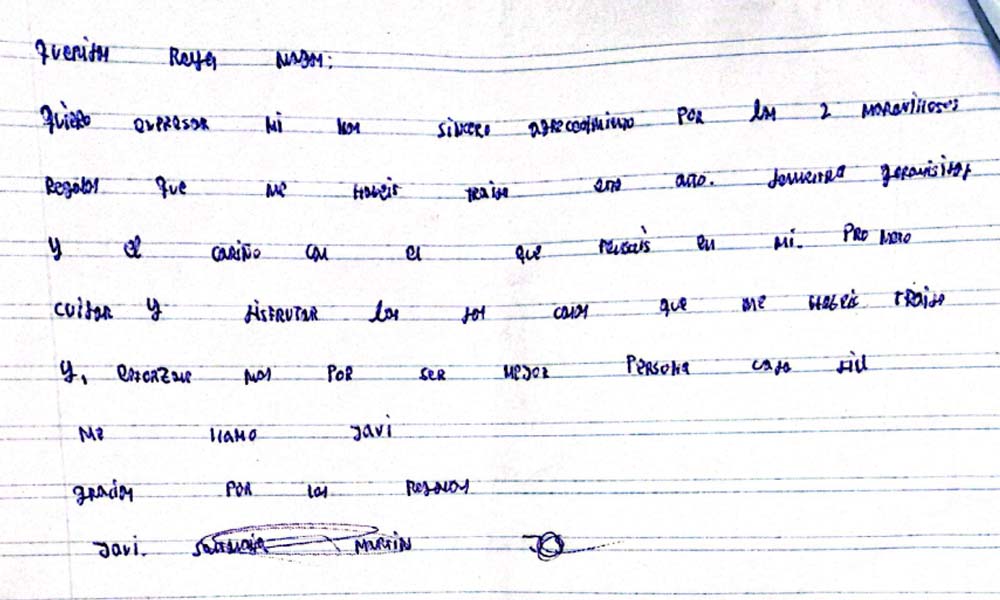 Queridos Reyes Magos:
Quiero expresar mi mas sincero agradecimiento por los 2 maravillosos
Regalos que me habeis traido este año. Vuestra generosidad
y el cariño con el que pensais en mi. Prometo
cuidar y disfrutar las dos cosas que me habeis traido
y, esforzarme mas por ser mejor persona cada dia
Me llamo Javi
gracias por los Regalos
Javi. Martin